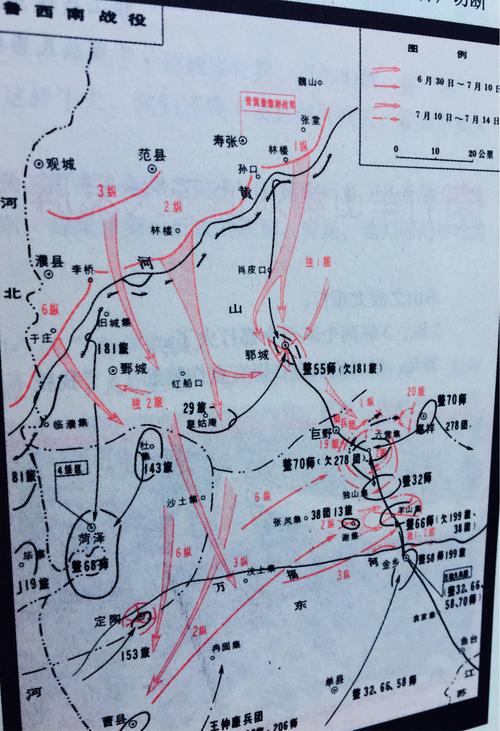 鲁西南战役
切断
图 例
6月30日～7月10日
7月10日～7月14日
0 10 20公里
魏山
晋冀鲁豫野战军
张堂
寿张
林楼
1纵
孙口
范县
观城
黄
3纵
2纵
林楼
河
濮县
李桥
河
肖皮口
独1旅
北
6纵
于庄
旧城集
山
181旅
郓城
鄄城
红船口
整55师(欠181旅)
独2旅
29旅
皇姑庵
1纵
20旅
整70师
278团
嘉祥
临濮集
巨野
19旅
六营集
整70师(欠278团)
143旅
81旅
4绥区
沙土集
独山集
整32师
6纵
38团13旅
张凤集
羊山集
谢集
整66师(欠199旅、
38团)
菏泽
整68师
6纵
3纵
独1.2旅
毕寨
119旅
汶上集
万
福
河
金乡
整58师199旅
3纵
东
定陶
2纵
整32.66.
58.70师)
153旅
冉固集
袁家集
鱼台
单县
江
苏
整32.66.58师
河
曹县
王仲廉兵团
206师